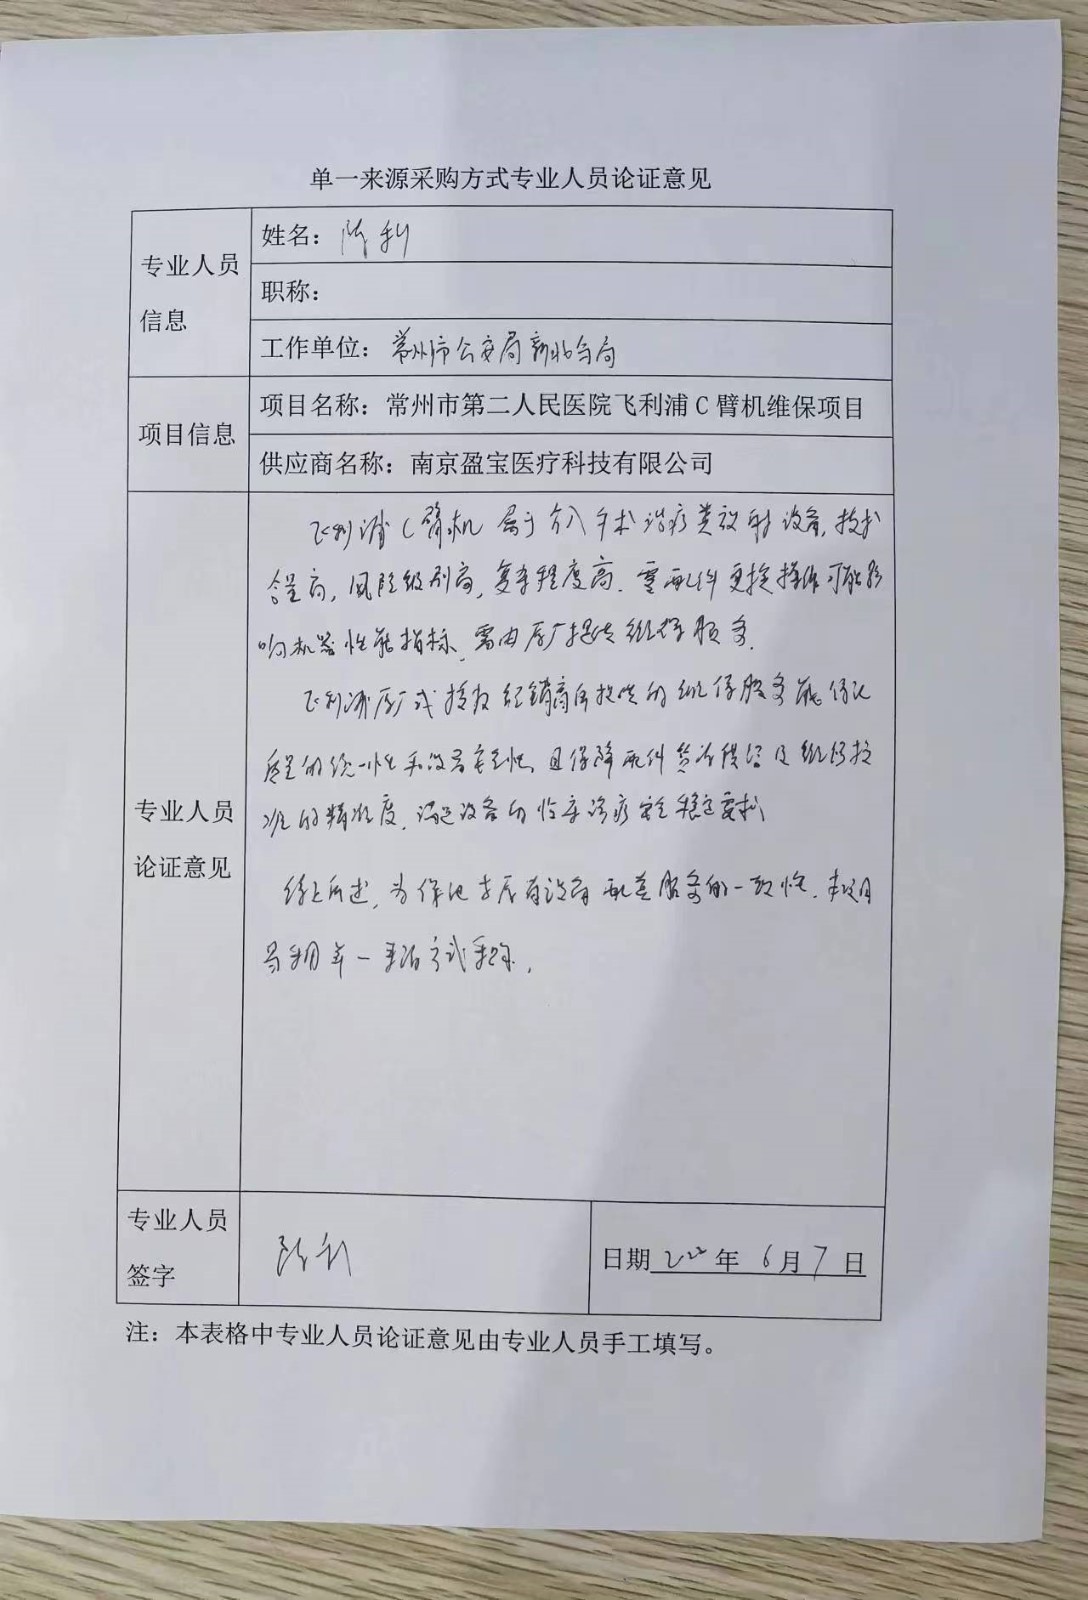 单一来源采购方式专业人员论证意见
专业人员
信息
姓名：陈利
职称：
工作单位：常州市公安局新北分局
项目信息
项目名称：常州市第二人民医院飞利浦C臂机维保项目
供应商名称：南京盈宝医疗科技有限公司
专业人员
论证意见
飞利浦C臂机属于介入手术治疗类放射设备，技术
含量高，风险级别高，复杂程度高．零配件更换操作可能影
响机器性能指标，需由原厂提供维保服务．
飞利浦原厂或授权经销商所提供的维保服务能保证
质量的统一性和设备安全性，且保障配件货源供给及维保校
准的精准度，满足设备的临床诊疗安全稳定要求
综上所述，为保证与原有设备配套服务的一致性．本项目
采用单一来源方式采购．
专业人员
签字
陈利
日期 2022年 6月7日
注：本表格中专业人员论证意见由专业人员手工填写。